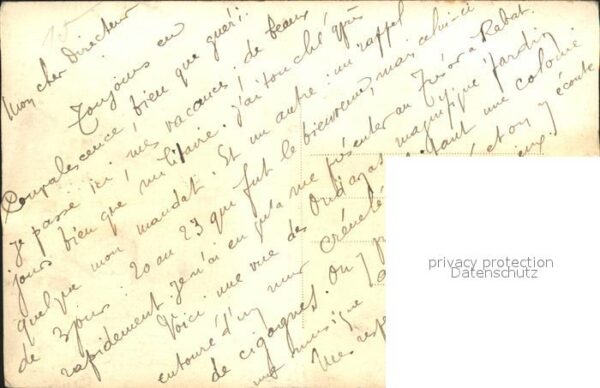 Mon cher Directeur
Toujours en
Convalescence bien que guéri.
je passe ici mes vacances de beaux
jours bien que militaire. j'ai touché qui
quelque mon mandat. Et un autre : un rappel
de 3 jours. 20 au 23 qui fut le bienvenu, mais celui-ci
rapidement. je n'ai eu qu'à me présenter au Trésor à Rabat.
Voici une vue des Oudaias magnifique jardin
entouré d'un mur crénelé une colonie
de cigognes. On y et on y écoute
musique
Mes resp
privacy protection
Datenschutz